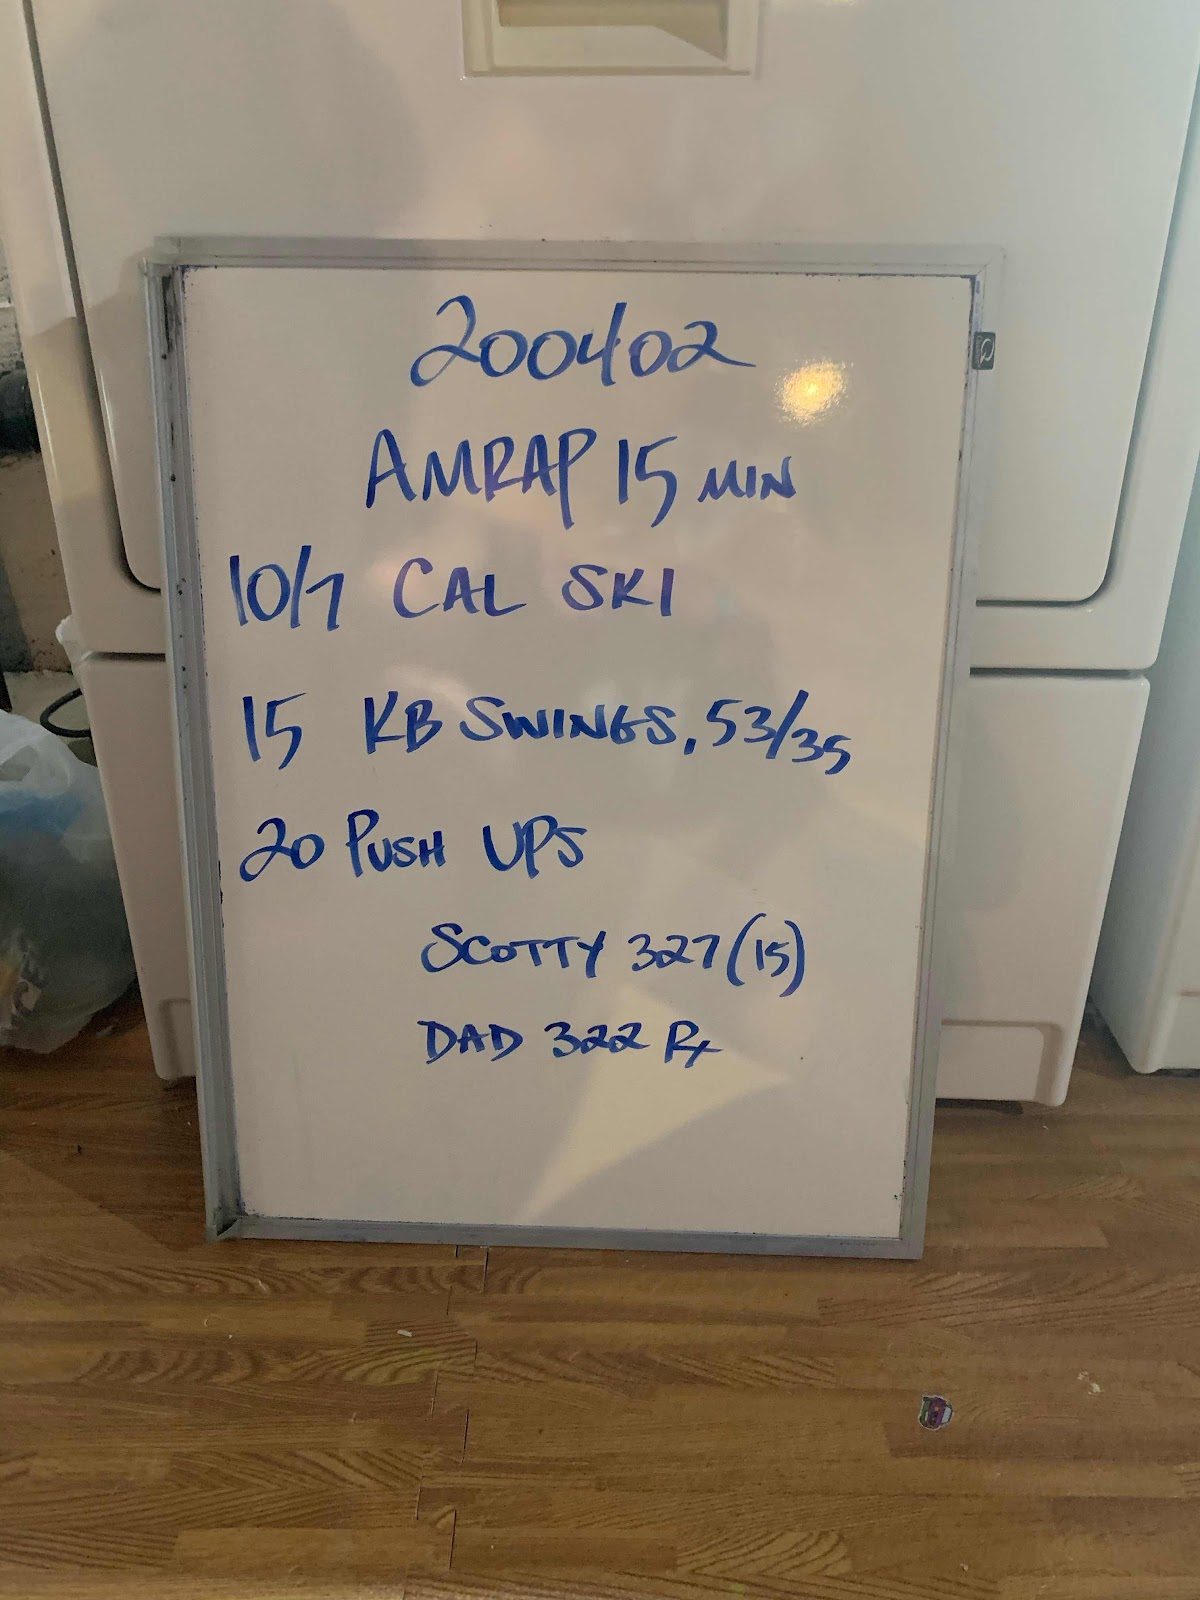 200402
AMRAP 15 MIN
10/7 CAL SKI
15 KB SWINGS, 53/35
20 PUSH UPS
SCOTTY 327 (15)
DAD 322 Rx